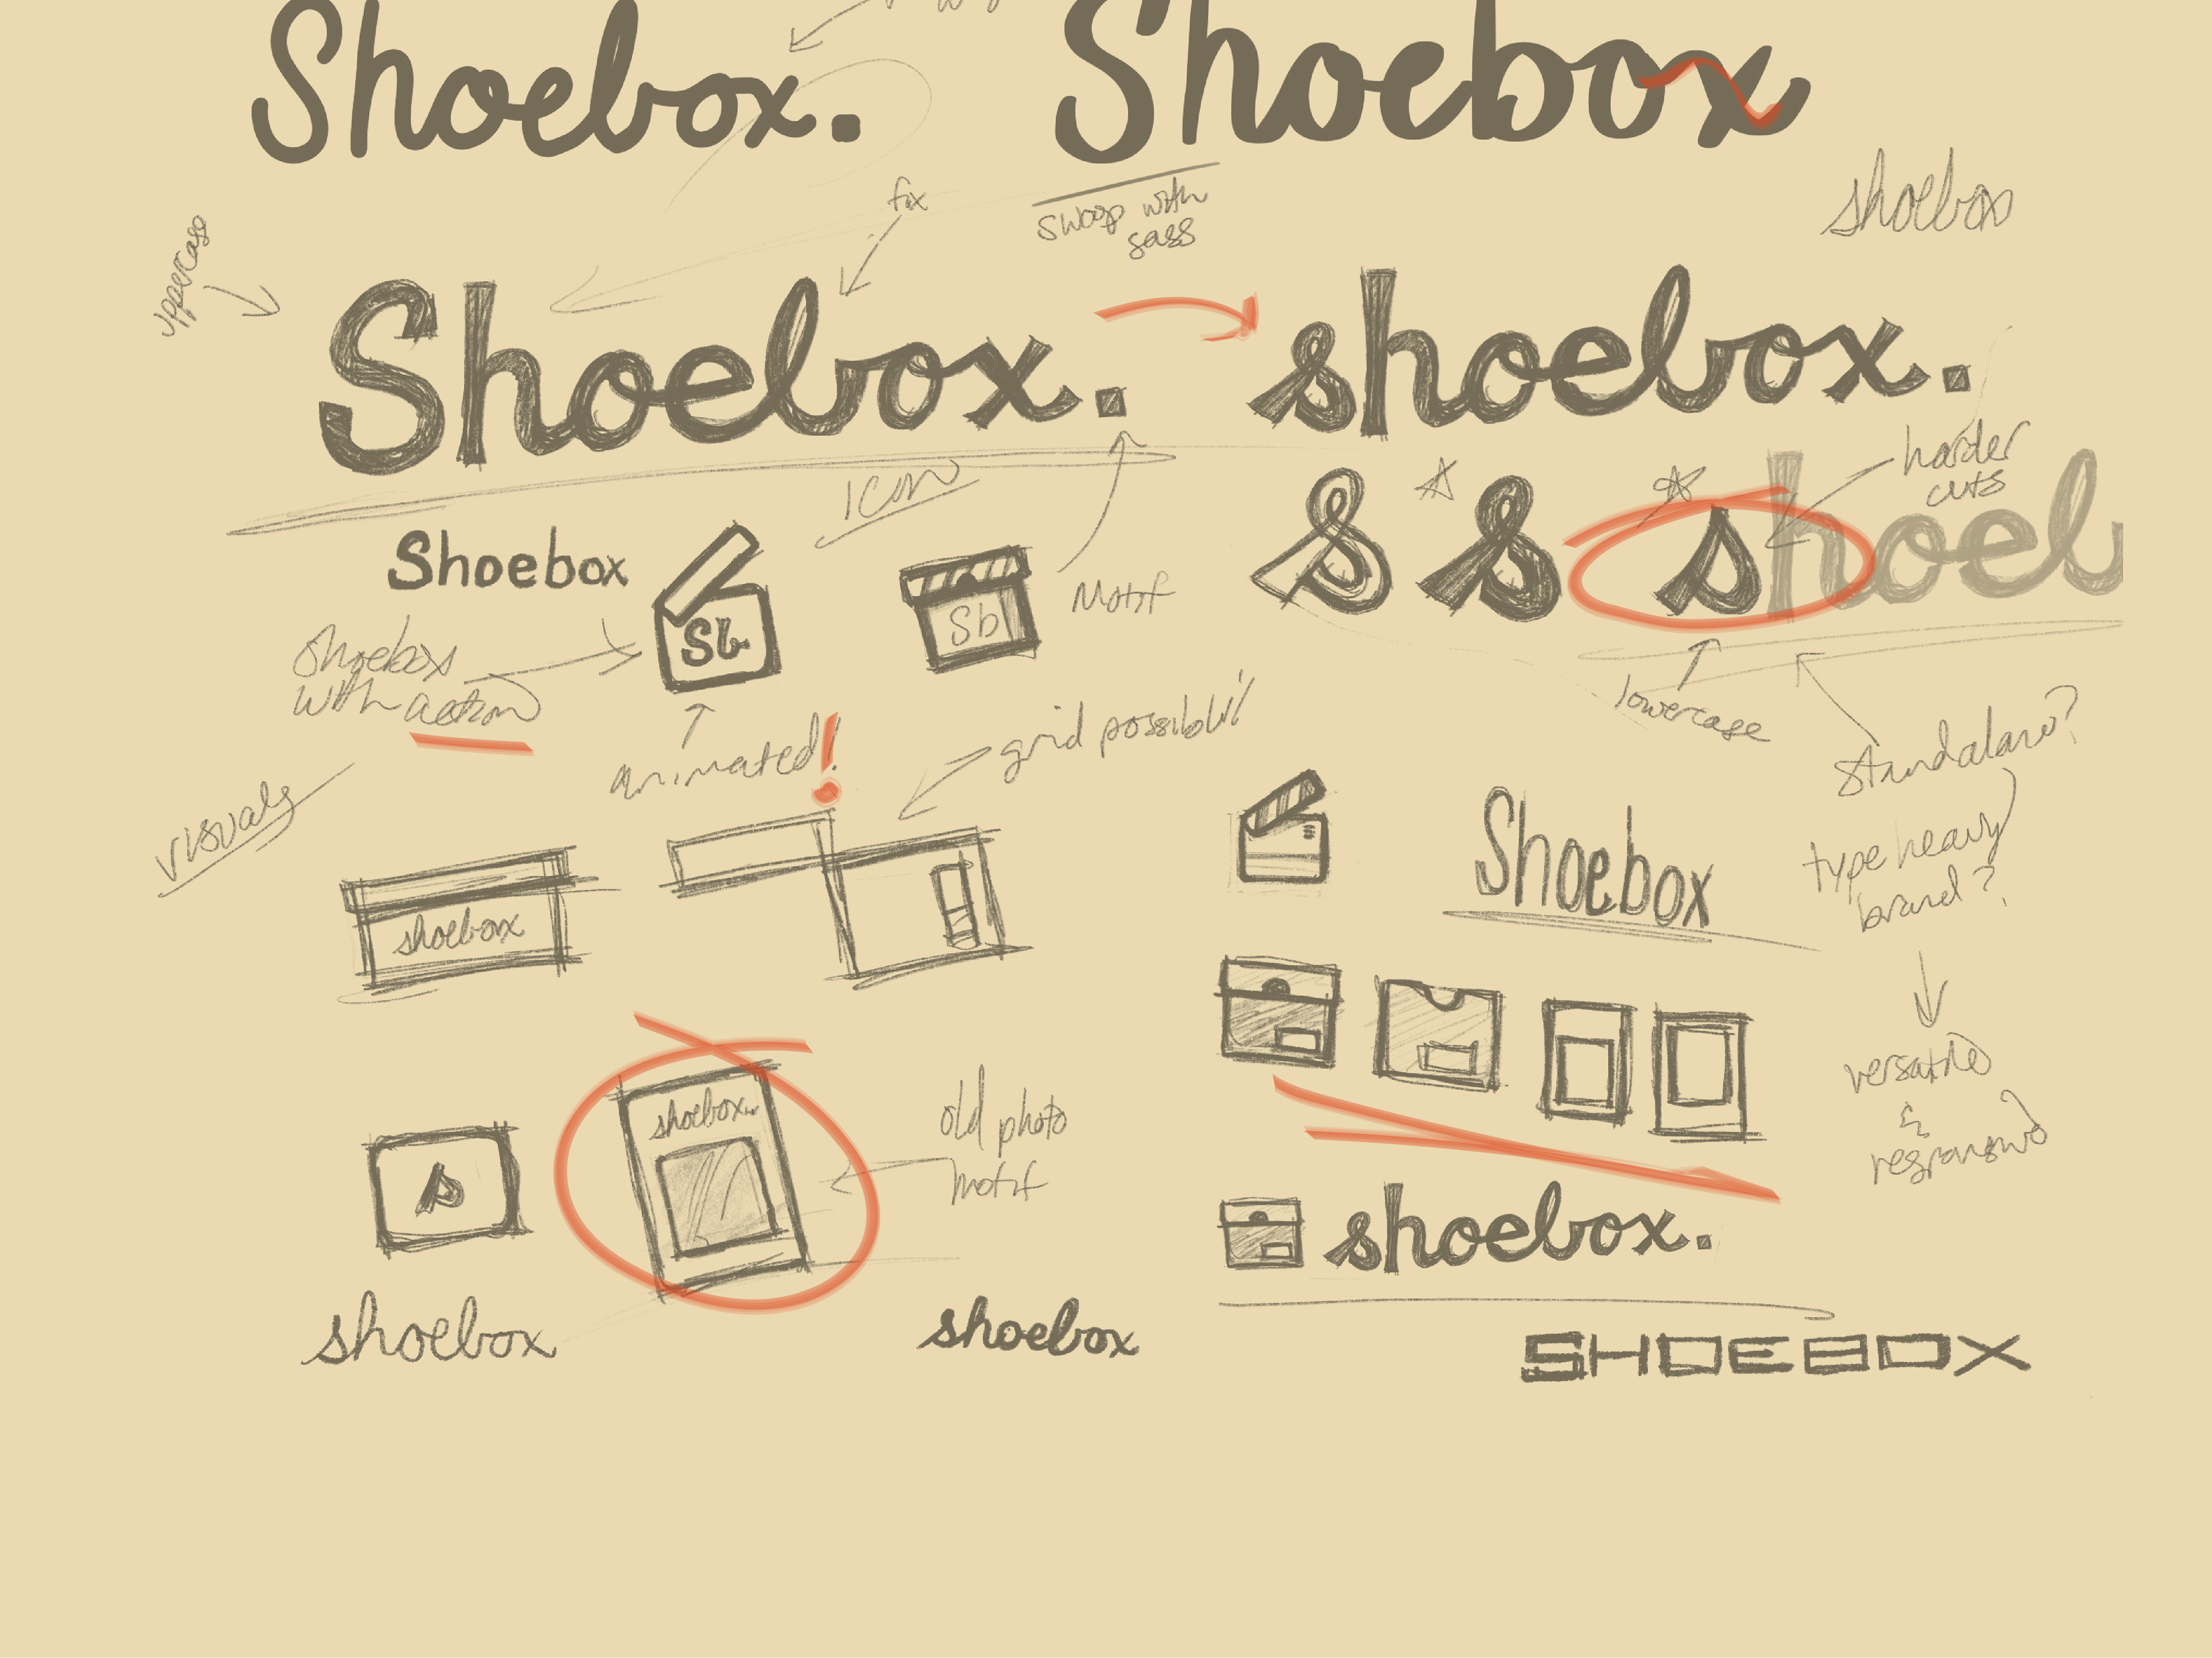 Shoebox.
Shoebox
swoop with
sass
shoebox
fix
uppercase
Shoebox.
shoebox.
harder
cuts
icon
S
S
s
hoeb
Shoebox
Sb
Sb
Motif
Shoebox
with action
animated!
grid
lowercase
Standalone?
visuals
type heavy
brand?
Shoebox
shoebox
versatile
&
shoebox
old photo
motif
s
shoebox.
shoebox
shoebox
SHOEBOX